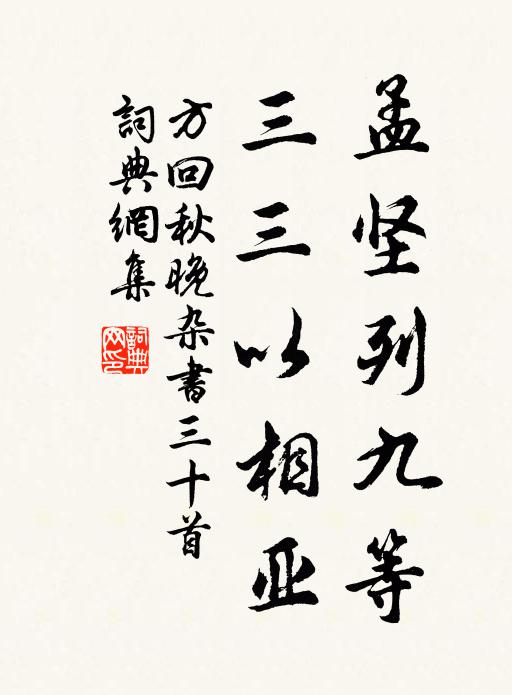 孟坚列九等
三三以相亚
方回秋晚杂书三十首
詞典網集
詞典网印